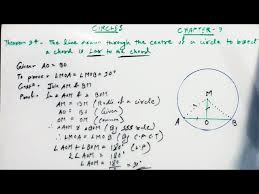 CIRCLES CHAPTER-9
Theorem 9.4 The line drawn through the centre of a circle to bisect
a chord is ⊥ar to the chord.
Given: AO = BO
To prove = ∠MOA = ∠MOB = 90°
Const = Join AM & BM
Proof: In △AOM & △BOM
AM = BM (Radii of circle)
AO = BO (Given)
OM = OM (common)
∴ △AOM ≅ △BOM (By SSS rule)
∠AOM = ∠BOM (By C.P.C.T)
∠AOM + ∠BOM = 180° (L.P)
2∠AOM = 180°
∠AOM = 180°/2 = 90°
M
A O B